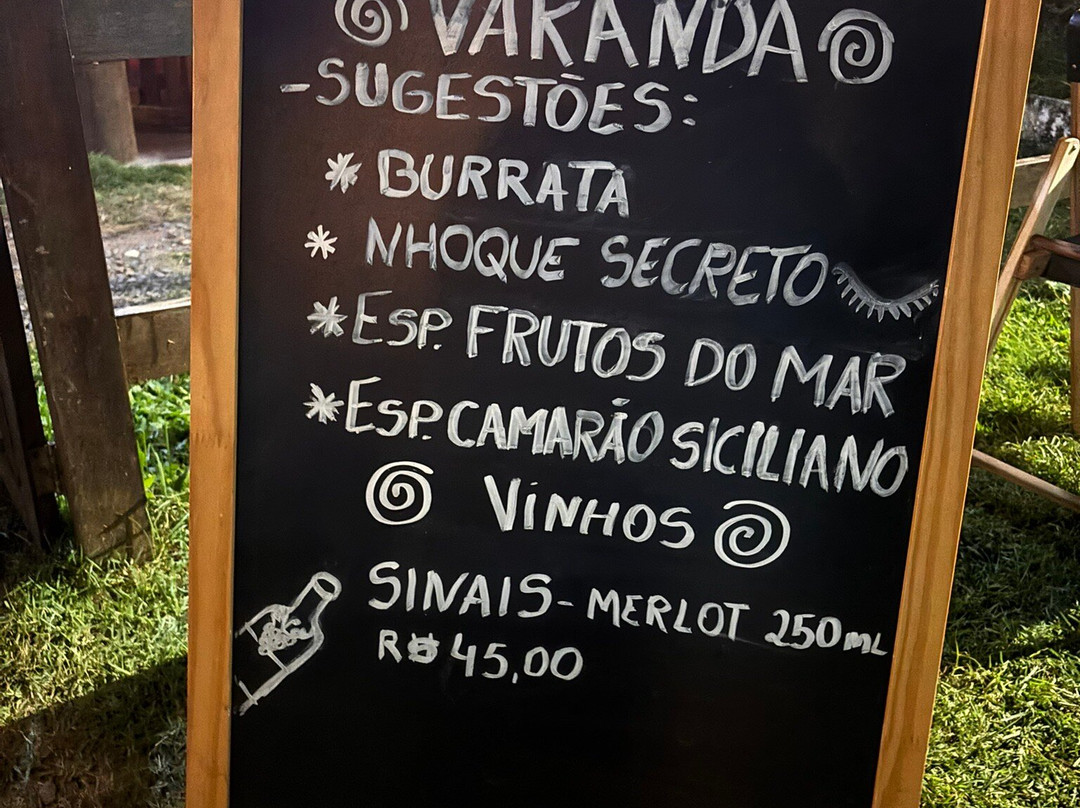 VARANDA
-SUGESTÕES:
* BURRATA
* NHOQUE SECRETO
* ESP. FRUTOS DO MAR
* ESP. CAMARÃO SICILIANO
VINHOS
SINAIS - MERLOT 250ML
R$ 45,00